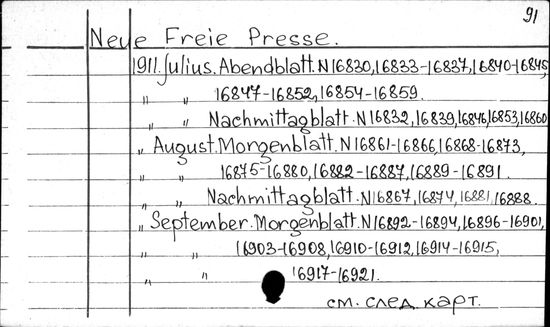 91
Neue Freie Presse.
1911. Julius. Abendblatt. N 16830, 16833-16837, 16840-16845,
" " 16847-16852, 16854-16859.
" " Nachmittagblatt. N 16832, 16839, 16846, 16853, 16860
" August. Morgenblatt. N 16861-16866, 16868-16873,
" " 16875-16880, 16882-16887, 16889-16891.
" " Nachmittagblatt. N 16867, 16874, 16881, 16888.
" September. Morgenblatt. N 16892-16894, 16896-16901,
" " 16903-16908, 16910-16912, 16914-16915,
" " 16917-16921.
см. след. карт.